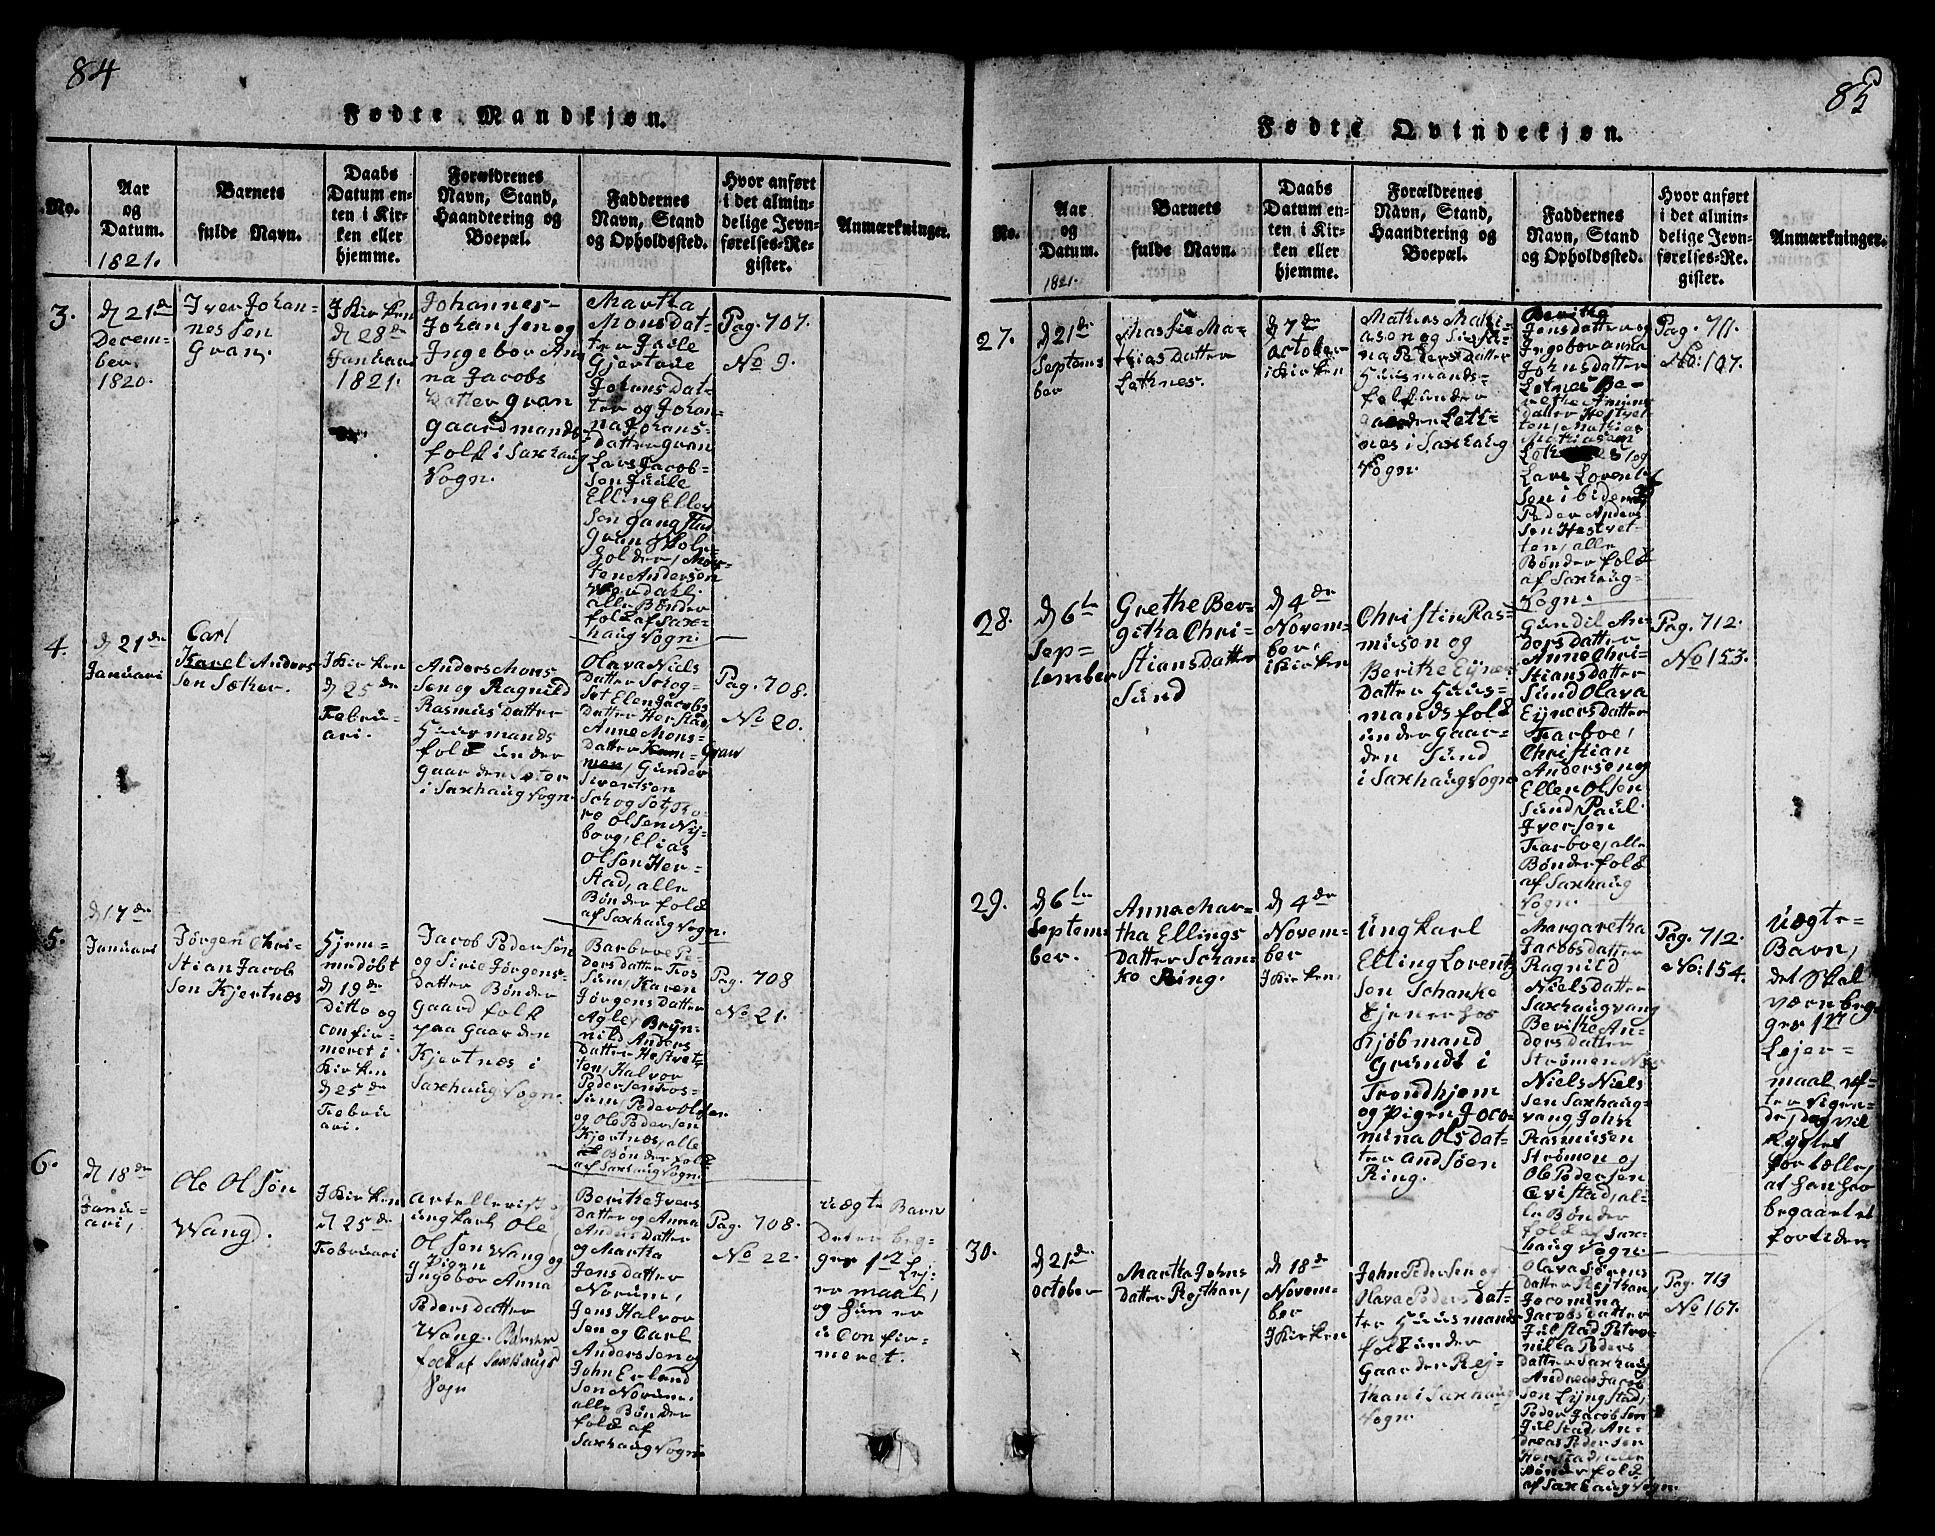 84
Fødte Mandkjøn.
No.
Aar
og
Datum.
1821.
Barnets
fulde Navn.
Daabs
Datum en-
ten i Kir-
ken eller
hjemme.
Forældrenes
Navn, Stand,
Haandtering og
Boepæl.
Faddernes
Navn, Stand
og Opholdssted.
Hvor anført
i det almin-
delige Jevn-
førelses-Re-
gister.
Anmærkninger.
3.
d 21de
Decem-
ber.
1820.
Iver Johan-
nessen
Gran.
I Kirken
d 28de
Januari
1821.
Johannes
Johansen og
Ingebor An
na Jacobs
Datter Gran
gaardmands
folk i Saxhaug
Sogn.
Martha
Monsdat-
ter Juule
Gjertrue
Johansdat-
ter og Johan-
na Johans-
Datter Gran
Lars Jacob-
sen Juule
Elling Eller
sen
Gran
holder, Mor-
ten Andersen
Werdahl,
alle Bønder
folk af Sax-
haug Sogn.
Pag. 707.
No 9.
4.
d 21de
Januari
Carl
Karel Anders
sen Sæter.
I Kirken
d 25de
Febru-
ari.
Anders Mons
sen og Ragnild
Rasmusdatter
Huusmands
folk under
Gaarden Seter
i Saxhaug Sogn.
Olava Niels
Datter Skog-
set Ellen Jacobs
Datter Herstad,
Anne Mons-
datter Gran
Gunder
Sivertsen
Skogset, To-
re Olsen Ny-
borg, Elias
Olsen Her-
stad, alle
Bønderfolk
af Saxhaug Sogn.
Pag. 708.
No 20.
5.
d 17de
Januari
Jørgen Chri-
stian Jacob
sen Kjertnæs
Hjem-
medøbt
d 19de
Ditto og
confir-
meret i
Kirken
d 25de
Febru
ari.
Jacob Pedersen
og Sirie Jørgens-
datter Bønder
Gaard folk
paa Gaarden
Kjertnæs i
Saxhaug Sogn.
Barbroe Pe-
dersdatter Fos
sum, Karen
Jørgensdatter
Agle, Bryn-
nild Anders
Datter Hestvet-
ten, Halvor
Pedersen Fos-
sum, Peder Olsen
og Ole Pedersen
Kjertnæs, alle
Bønderfolk
af Saxhaug Sogn.
Pag. 708
No 21.
6.
d 18de
Janu-
ari,
Ole Olsen
Wang.
I Kirken
d 25de
Februari
Artellerist og
ungkarl Ole
Olsen Wang og
Pigen
Ingebor Anna
Pedersdatter
Wang. Bønder
folk af Saxhaugs
Sogn
Berithe Ivers
Datter og Anna
Andersdatter
og Martha
Jensdatter
Norum,
Jens Halvor
sen og Carl
Anderssen og
John Erland
sen Norum.
alle Bønder
folk af
Saxhaug Sogn.
Pag. 708.
No 22.
uægte Barn
Det er beg-
ges 1ste Lej-
ermaal,
og hun er
uConfir-
meret.
85
Fødte Qvindekjøn.
No.
Aar
og
Datum.
1821.
Barnets
fulde Navn.
Daabs
Datum en-
ten i Kir-
ken eller
hjemme.
Forældrenes
Navn, Stand,
Haandtering og
Boepæl.
Faddernes
Navn, Stand
og Opholdssted.
Hvor anført
i det almin-
delige Jevn-
førelses-Re-
gister.
Anmærkninger.
27.
d 21de
Septem-
ber
Massie Ma-
thiasdatter
Letnes.
d 7de
October
i Kirken
Mathias Mathi-
asen og
Pedersdatter
Huusmands-
folk under
Gaarden Let-
nes i Saxhaug
Sogn.
Berithe
Jensdatter og
Ingebor Anna
Johnsdatter
Letnes Be-
rethe
Datter Hestvet-
ten, Mathias
Mathiasen
og
Lars Lorentz
sen ibidem
Peder Anders
sen Hestvet-
ten, alle
Bønderfolk
af Saxhaug-
Sogn.
Pag. 711.
No: 107.
28.
d 6te
Sep-
tember
Grethe Ber-
githa Chri-
stiansdatter
Sund
d 4de
Novem-
ber,
i Kirken
Christin Ras-
musen og
Berithe Ejners
Datter Huus-
mandsfolk
under Gaar-
den Sund
i Saxhaug Sogn
Gundil An-
dersdatter
Anne Chri-
stiansdatter
Sund Olava
Eynersdatter
Farboe,
Christian
Andersen og
Ellen Olsen
Sund, Paul
Iversen
Farboe, alle
Bønderfolk
af Saxhaug
Sogn.
Pag. 712.
No 153.
29.
d 6te
Septem-
ber.
Anna Mar-
tha Ellings
datter Schan-
ke Ring.
d 4de
Novem-
ber
I Kirken.
Ungkarl
Elling Lorentz
sen Schanke
tjener hos
Kjøbmand
Grundt i
Trondhjem
og Pigen Jaco-
mina Olsdat-
ter
Ring.
Margaretha
Jacobsdatter
Ragnild
Nielsdatter
Saxhaugvang
Berithe An-
dersdatter
Strømen
Niels Niels
sen Saxhaug-
vang John
Rasmusen
Strømen og
Ole Pedersen
Qvistad, al-
le Bønder
folk af Sax-
haug Sogn.
Pag. 712.
No: 154.
Uægte-
Barn,
det skal
være beg-
ges 1ste
Lejer-
maal ef-
ter Sigen-
de, Dog vil
Rygtet
fortælle,
at han har
begaaet et
forhen
30.
d 21de
October
Martha Johns
datter Rejthan,
d 18de
Novem-
ber
I Kirken
John Pedersen og
Olava Pedersdat-
ter Huusmands
folk under
Gaarden Rej-
than i Saxhaug
Sogn.
Olava Sørens
datter Rejthan,
Jacomina
Jacobsdatter
Julstad Petro-
nilla Peders
datter Saxhaug
Andreas Jacob
sen Lyngstad,
Peder Jacobsen
Julstad, An-
dreas Pedersen
Herstad, alle
Bønderfolk
af Saxhaug Sogn.
Pag. 713
No 167.